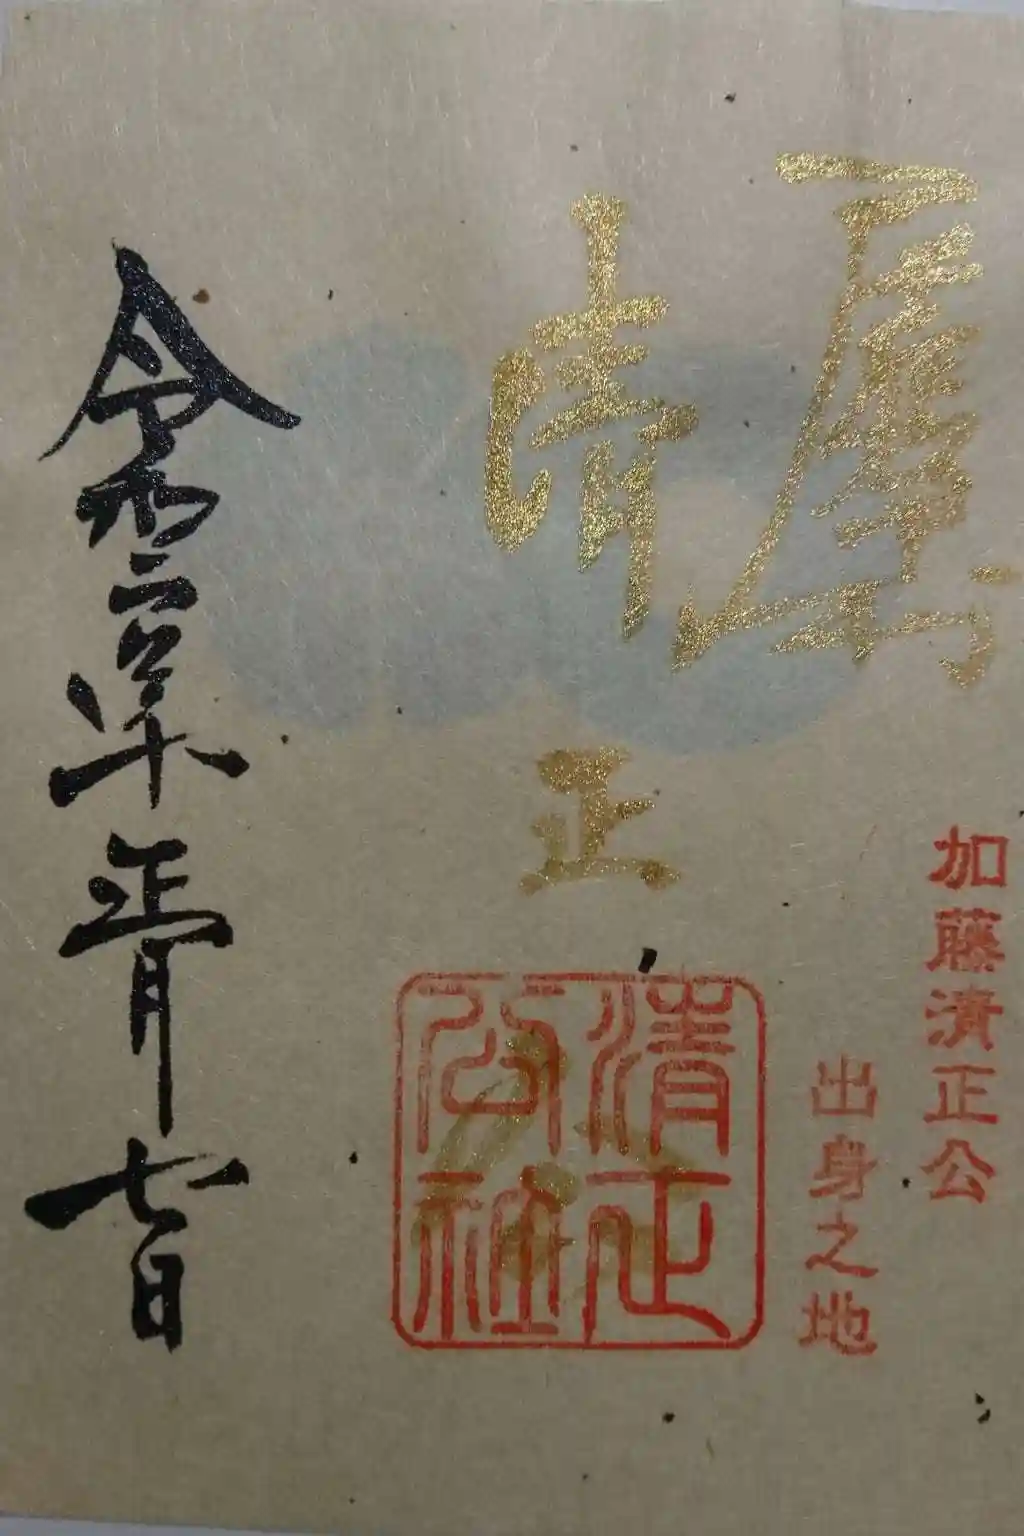 加藤清正公
出身之地
清正公
清正
公社
令和二年正月七日